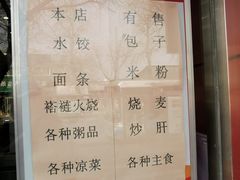 本店 有售
水饺 包子
面条 米粉
褡裢火烧 烧麦
各种粥品 炒肝
各种凉菜 各种主食